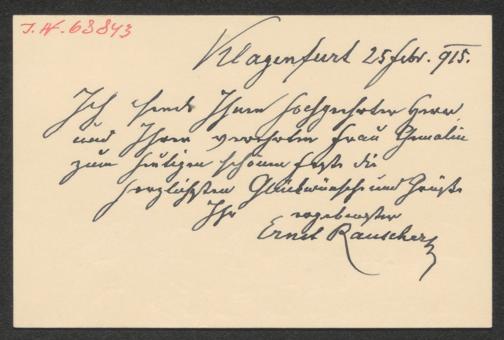 I.N. 63843
Klagenfurt 25 febr. 915.
Ich sende Ihnen hochgeehrter Herr
und Ihrer verehrten Frau Gemalin
zum heutigen schönen Feste die
herzlichsten Glückwünsche und Grüße
Ihr ergebenster
Ernst Rauscher